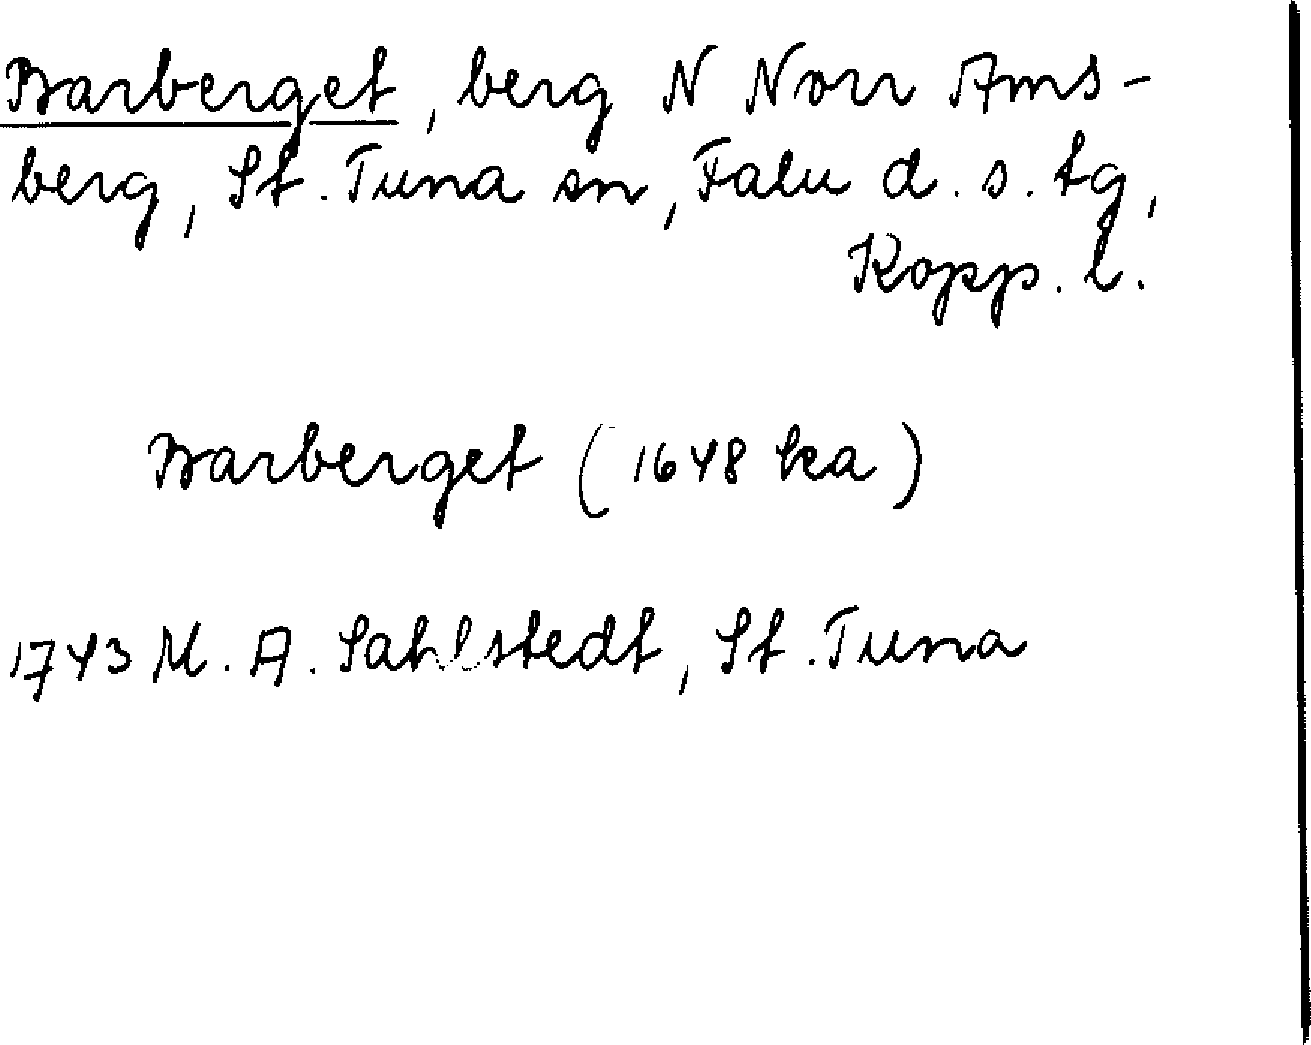 Barberget, berg N Norr Ams-
berg, St. Tuna sn, Falu d. s. tg,
Kopp. l.
Barberget (1648 kea)
1743 M. A. Sahlstedt, St. Tuna